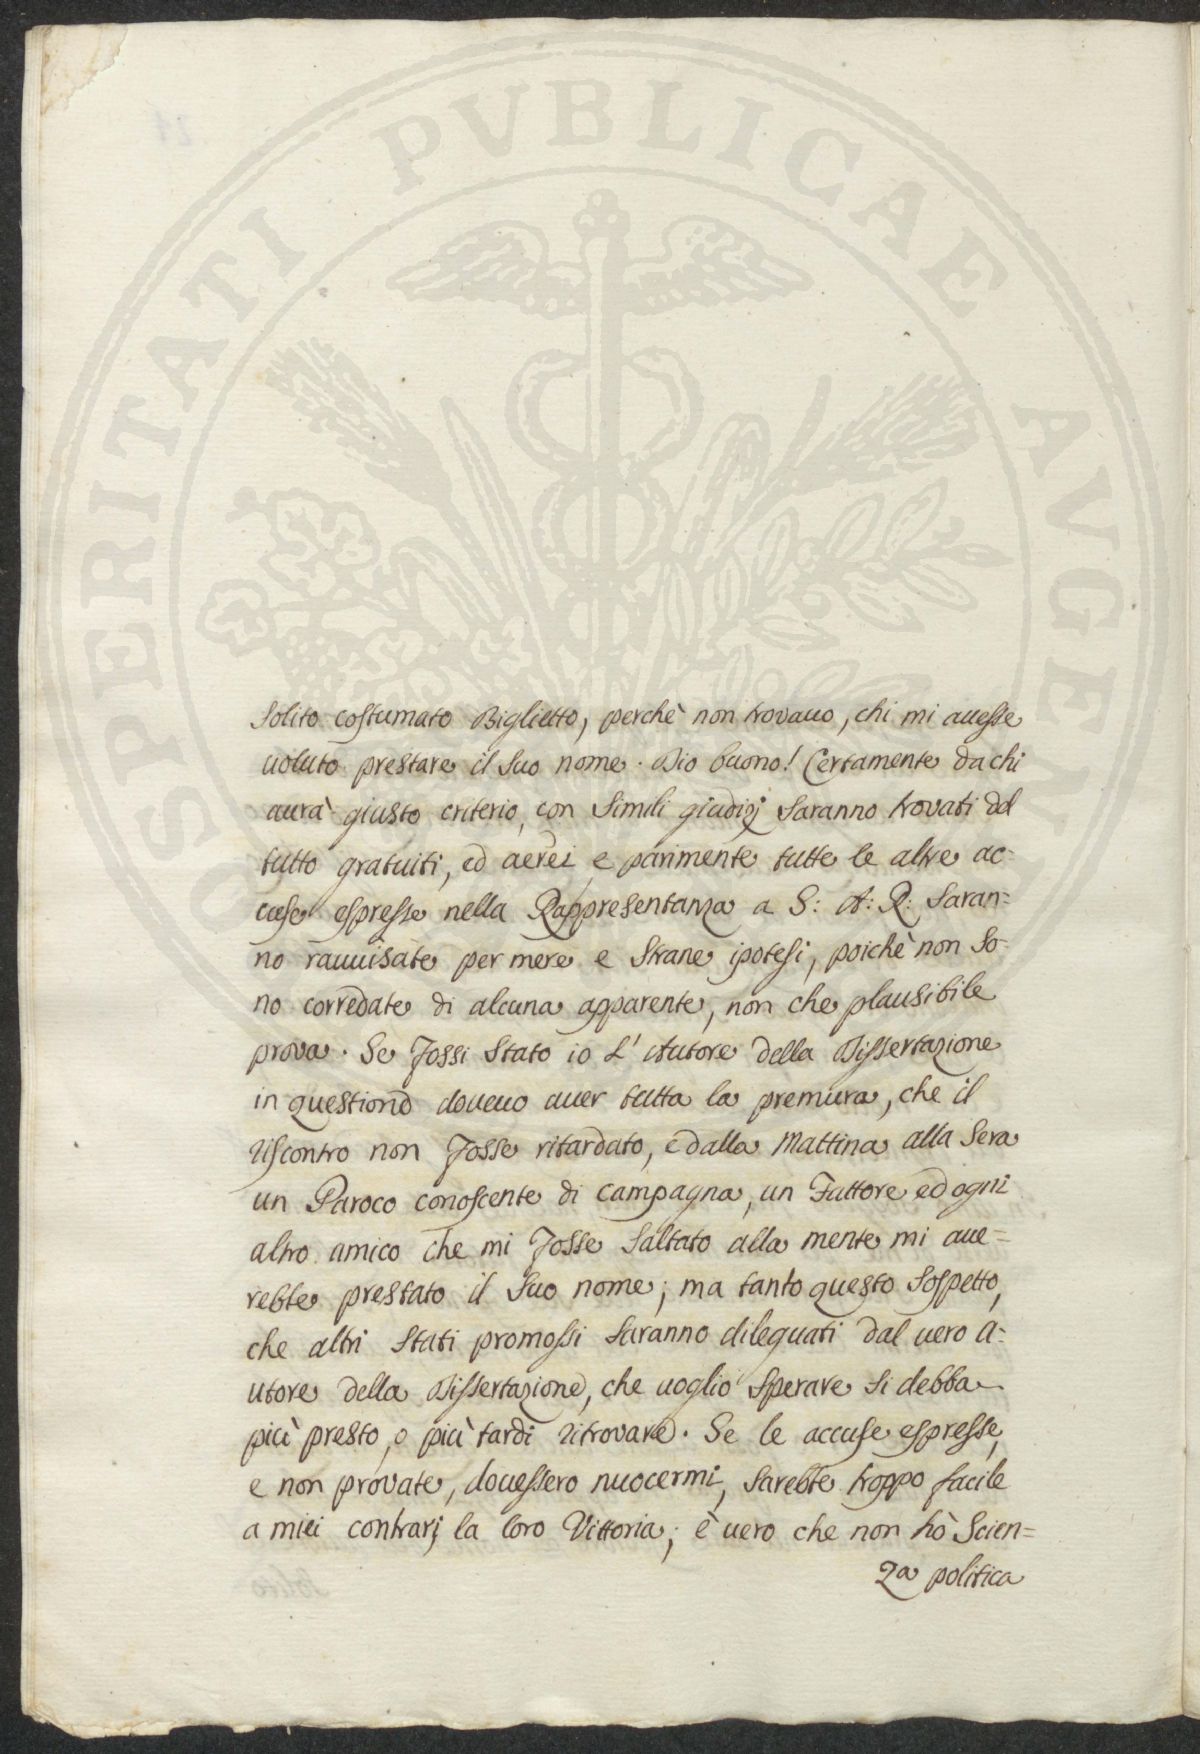 PROSPERITATI PVBLICAE AVGEN
Solito costumato Biglietto, perchè non trovavo, chi mi avesse
voluto prestare il Suo nome. Dio buono! Certamente da chi
avrà giusto criterio, con Simili giudizj Saranno trovati del
tutto gratuiti, ed aerei e parimente tutte le altre ac=
cuse espresse nella Rappresentanza a S: A: R: Saran=
no ravvisate per mere e Strane ipotesi, poichè non So=
no corredate di alcuna apparente, non che plausibile
prova. Se fossi Stato io L'Autore della Dissertazione
in questione dovevo aver tutta la premura, che il
riscontro non fosse ritardato, e dalla Mattina alla Sera
un Paroco conoscente di campagna, un Fattore ed ogni
altro amico che mi fosse Saltato alla mente mi ave=
rebbe prestato il Suo nome; ma tanto questo Sospetto,
che altri Stati promossi Saranno dileguati dal vero A=
utore della Dissertazione, che voglio Sperare Si debba
più presto, o più tardi ritrovare. Se le accuse espresse,
e non provate, dovessero nuocermi, Sarebbe troppo facile
a miei contrarj la loro Vittoria; è vero che non hò Scien=
za politica